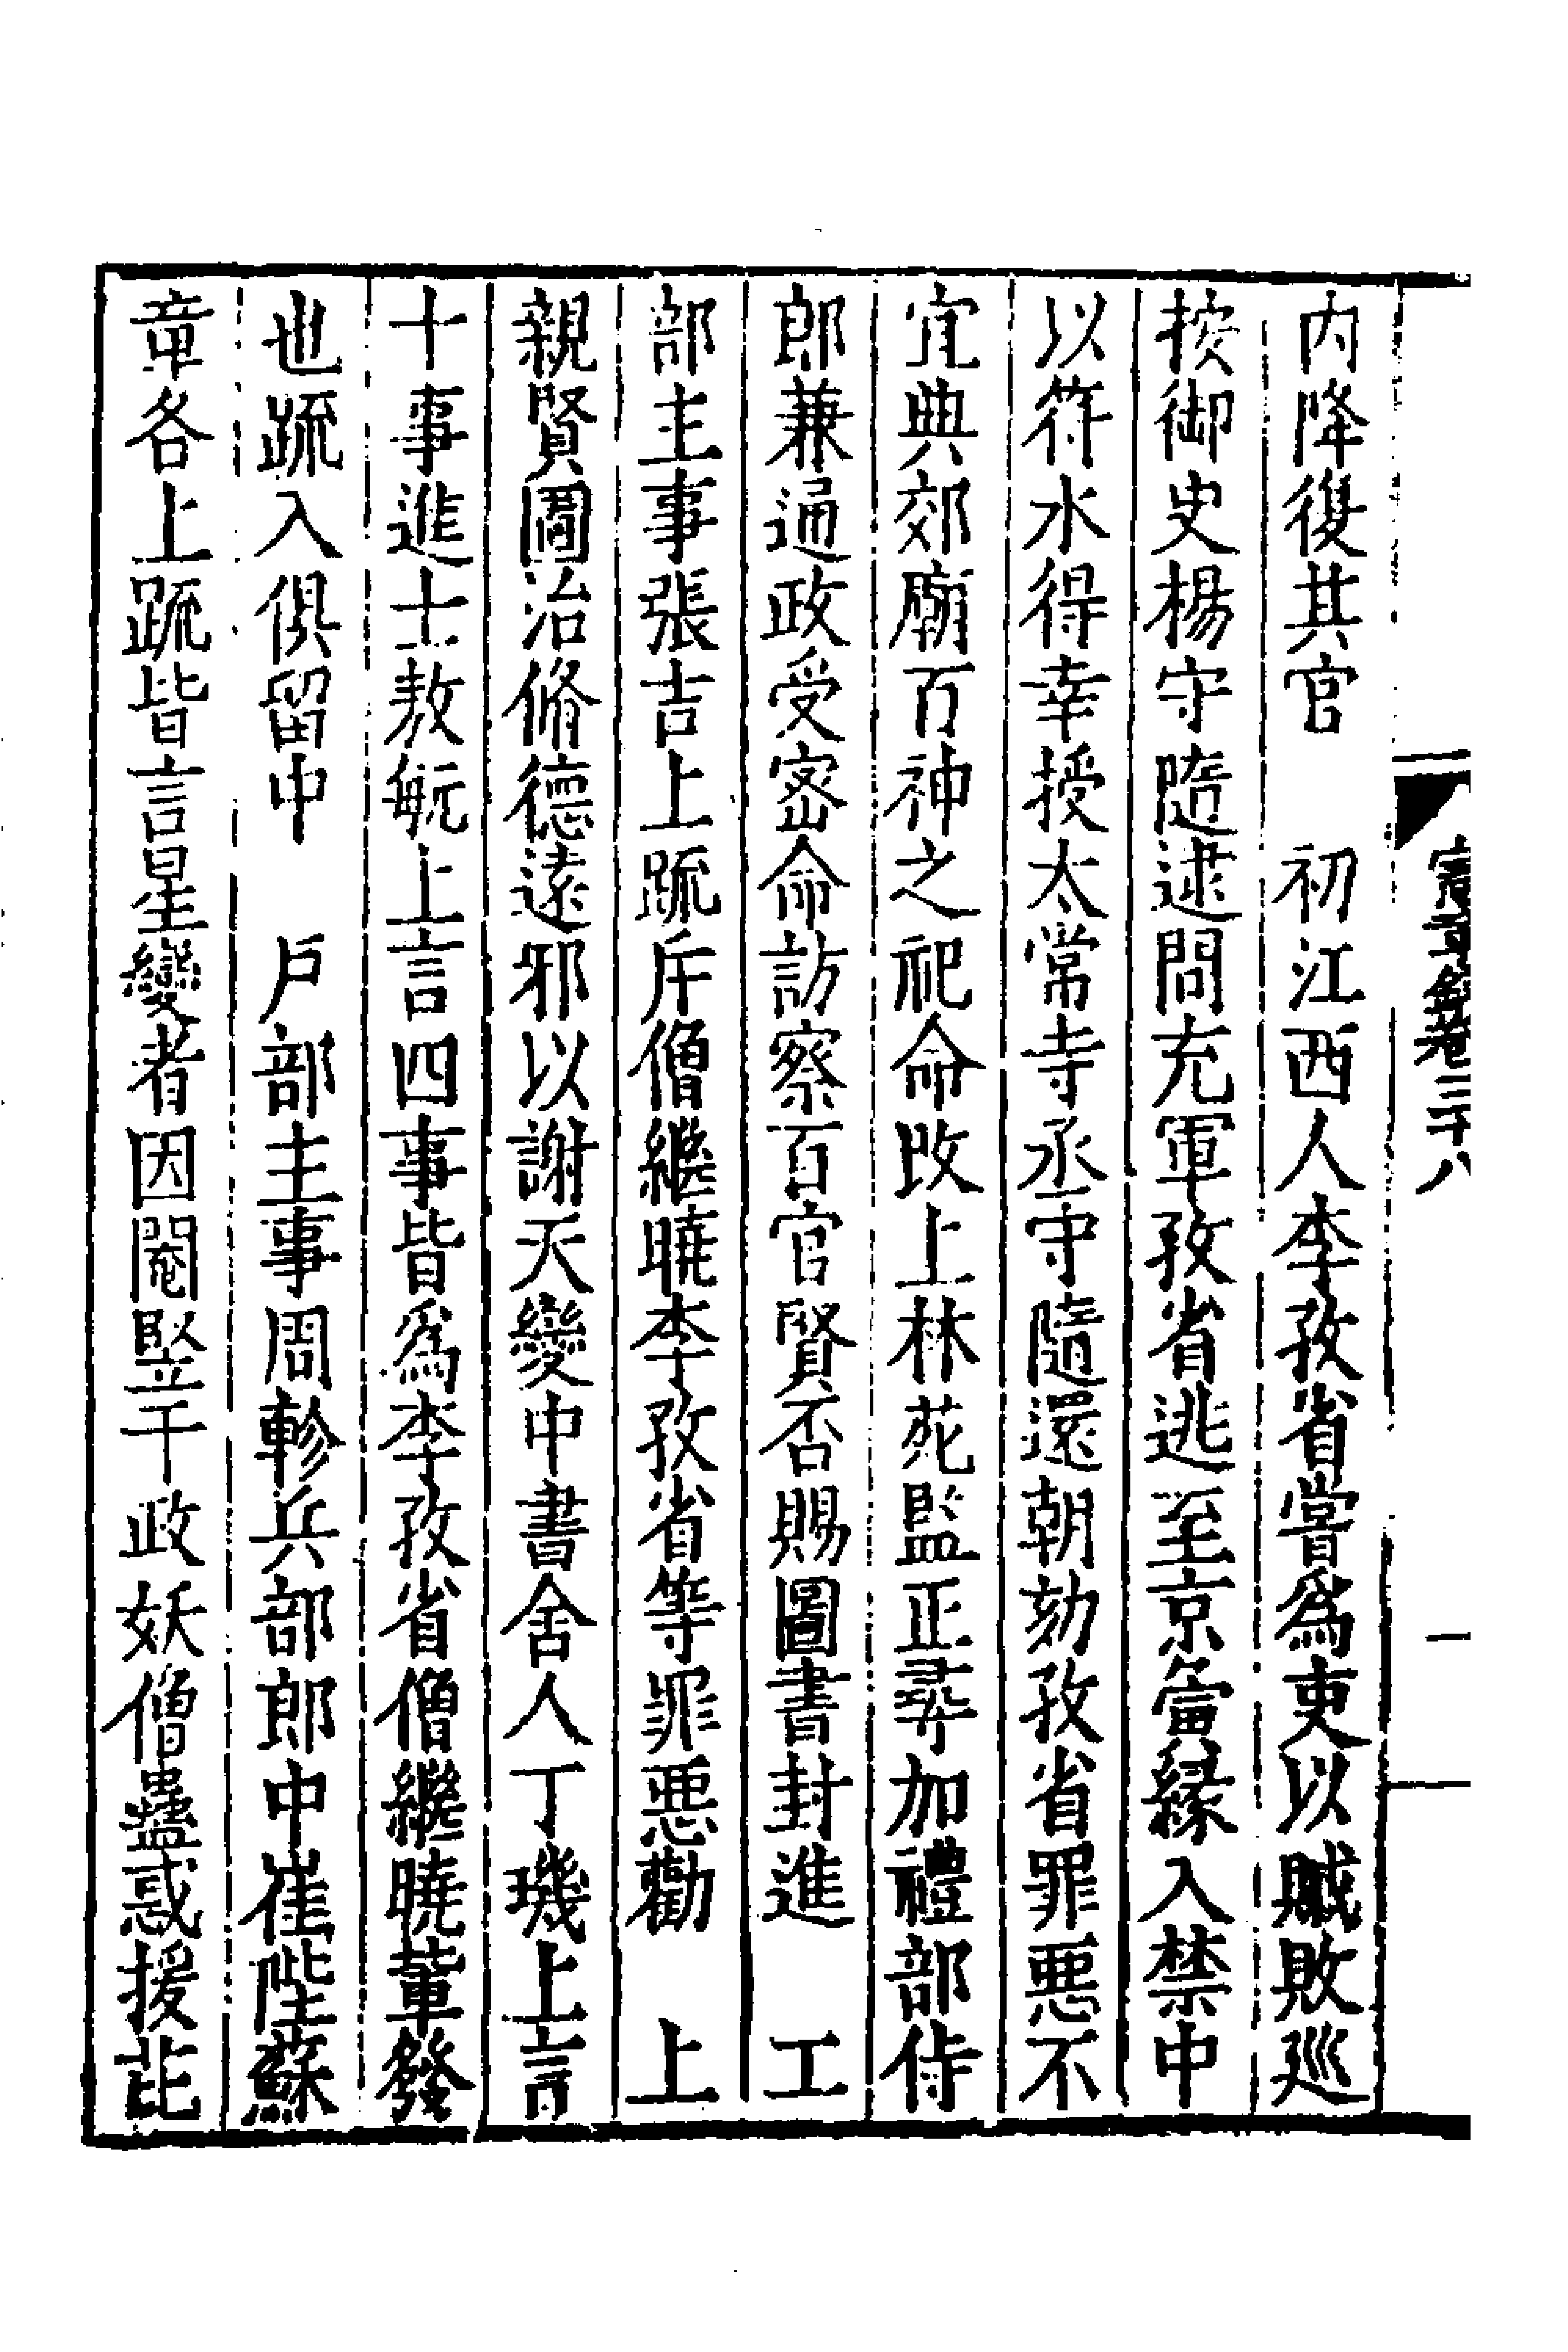 憲章錄卷三十八
一
內降復其官　初江西人李孜省嘗爲吏以贓敗廵
按御史楊守隨逮問充軍孜省逃至京夤縁入禁中
以符水得幸授太常寺丞守隨還朝劾孜省罪惡不
宜典郊廟百神之祀命改上林苑監正尋加禮部侍
郎兼通政受密命訪察百官賢否賜圖書封進　工
部主事張吉上疏斥僧繼曉李孜省等罪惡勸　上
親賢圖治脩德遠邪以謝天變中書舍人丁璣上言
十事進士敖毓上言四事皆爲李孜省僧繼曉輩發
也疏入俱留中　戶部主事周軫兵部郎中崔陞蘇
章各上疏皆言星變者因閹竪干政妖僧蠱惑援芘